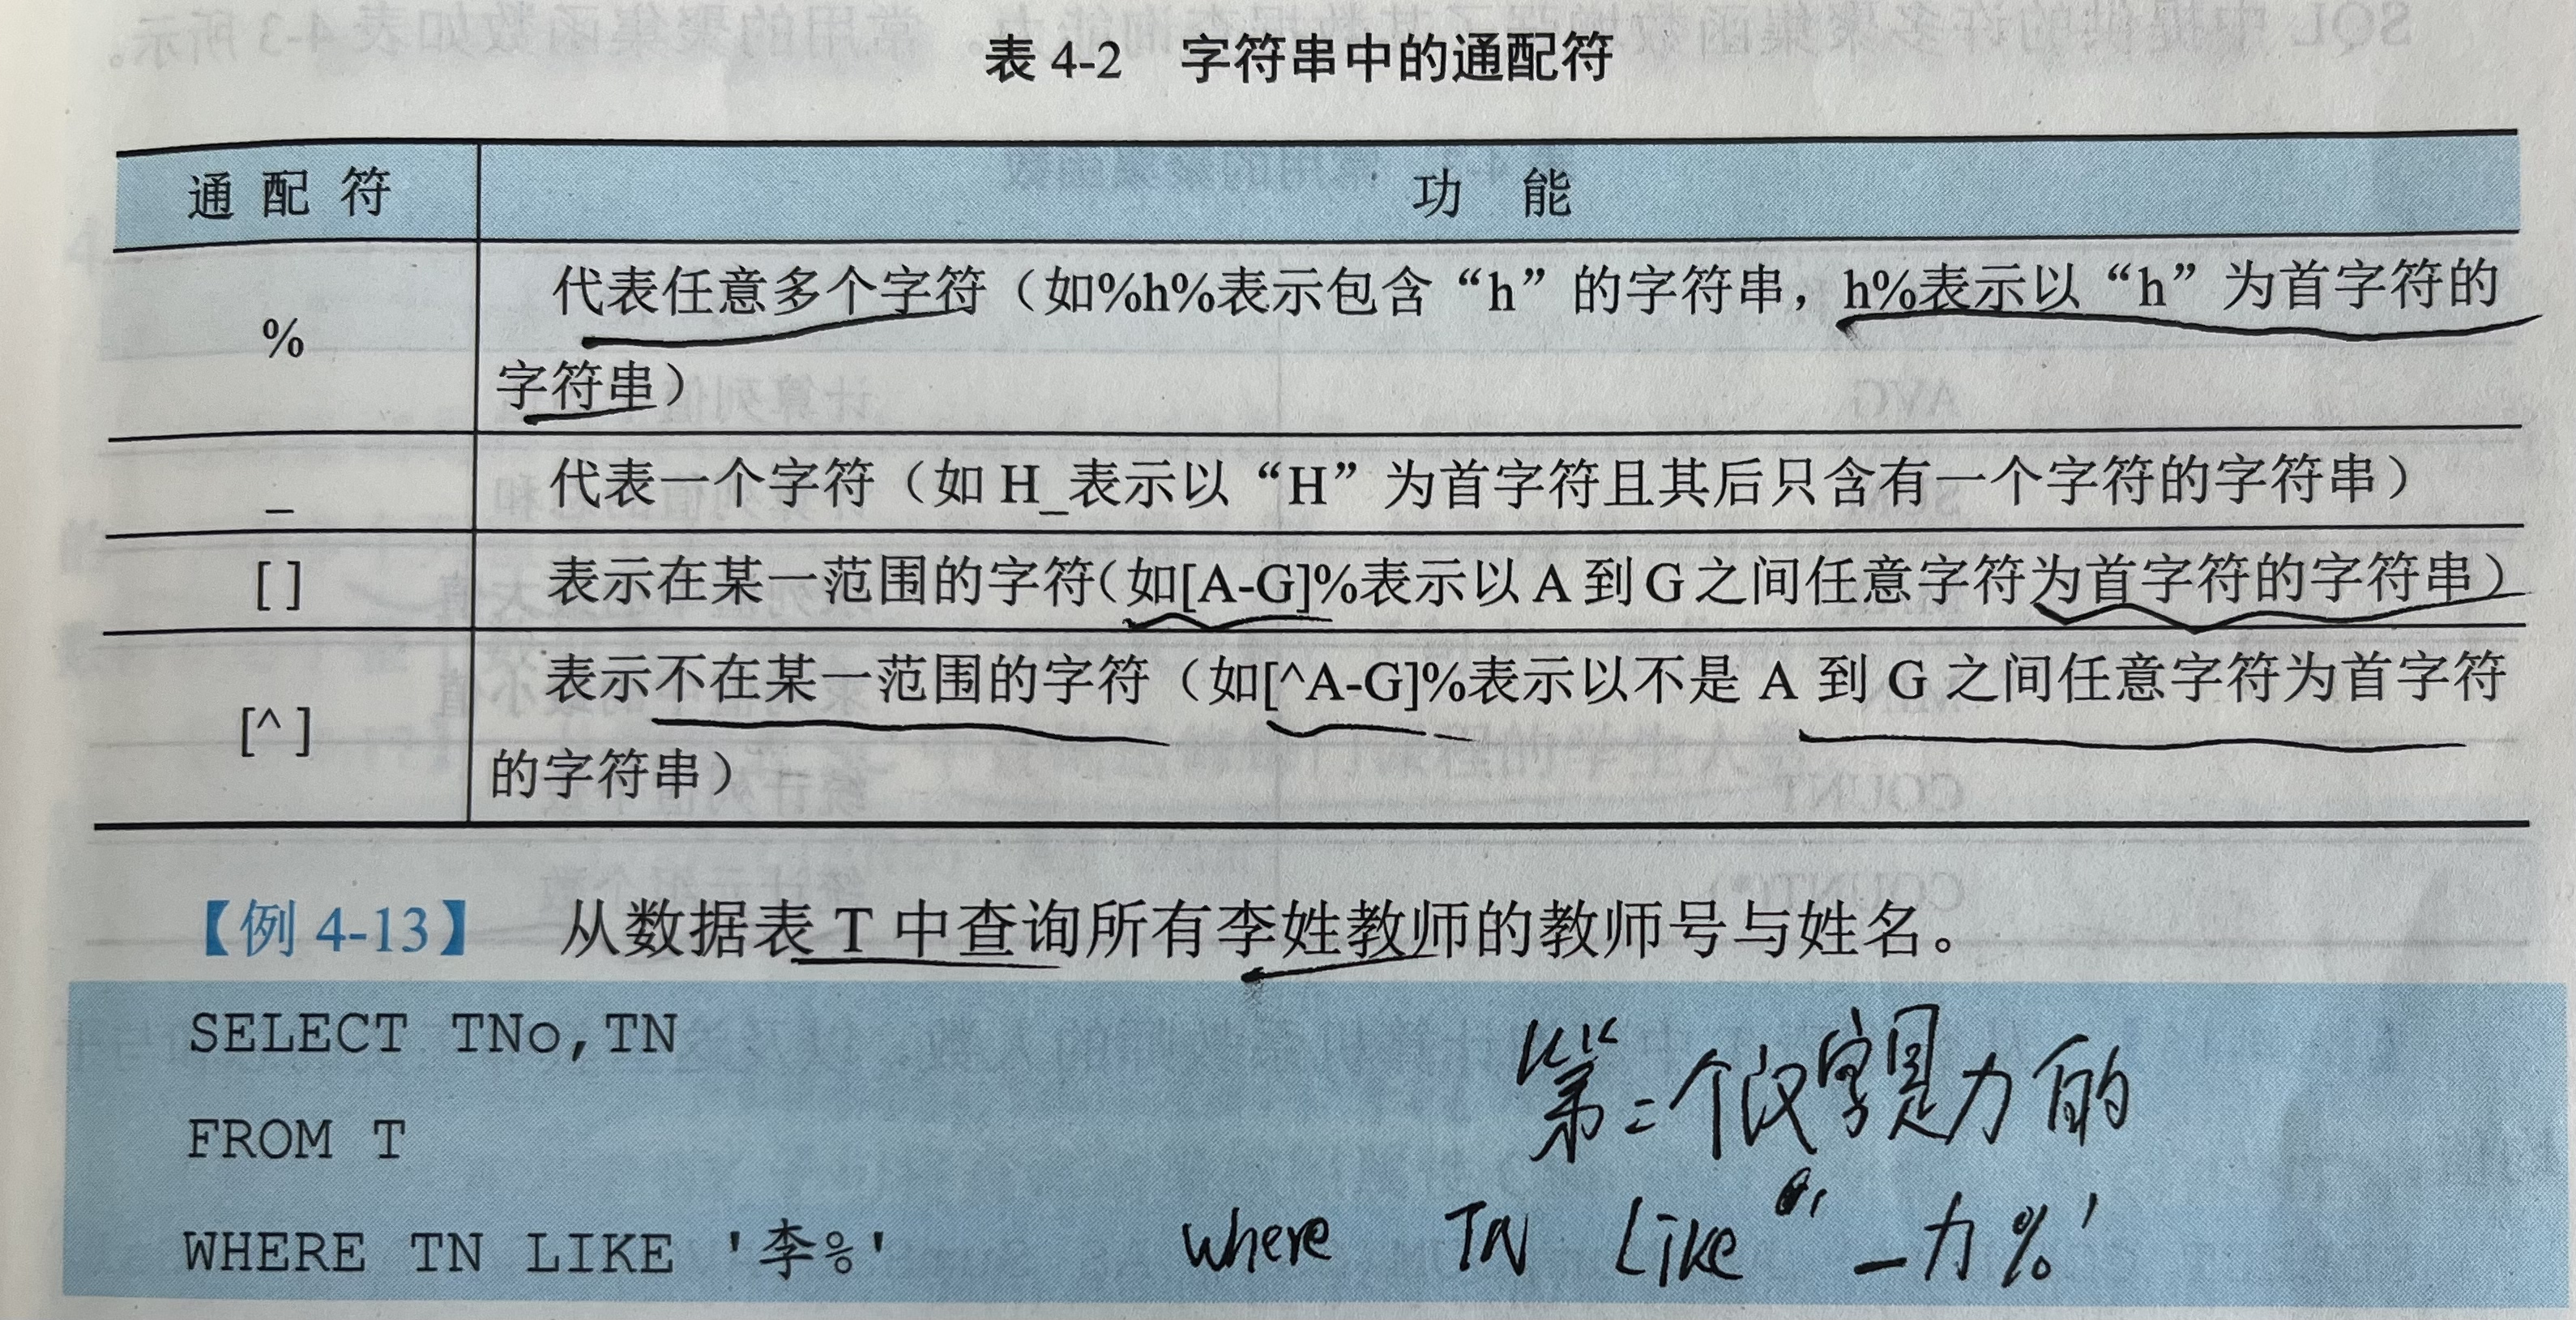 表 4-2 字符串中的通配符
通 配 符 功 能
% 代表任意多个字符（如%h%表示包含“h”的字符串，h%表示以“h”为首字符的
字符串）
_ 代表一个字符（如 H_表示以“H”为首字符且其后只含有一个字符的字符串）
[ ] 表示在某一范围的字符（如[A-G]%表示以 A 到 G 之间任意字符为首字符的字符串）
[^ ] 表示不在某一范围的字符（如[^A-G]%表示以不是 A 到 G 之间任意字符为首字符
的字符串）
【例 4-13】 从数据表 T 中查询所有李姓教师的教师号与姓名。
SELECT TNo,TN
FROM T
WHERE TN LIKE '李%'
第二个汉字是力的
where TN Like '_力%'